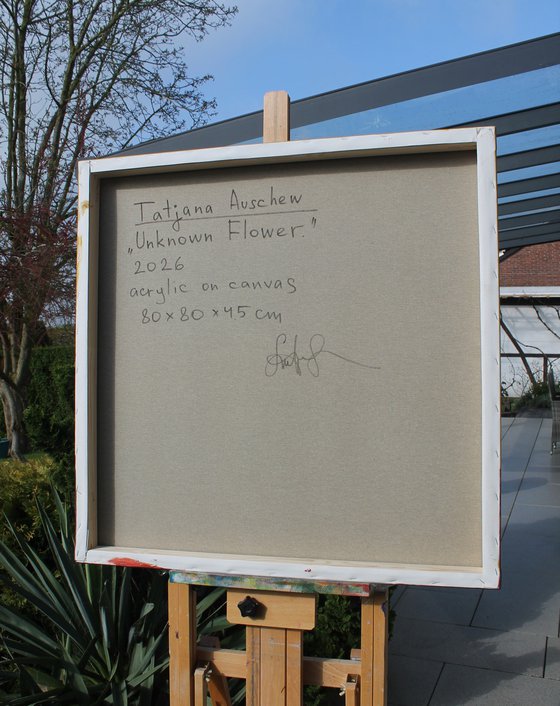 Tatjana Auschew
„Unknown Flower."
2026
acrylic on canvas
80 × 80 × 45 cm